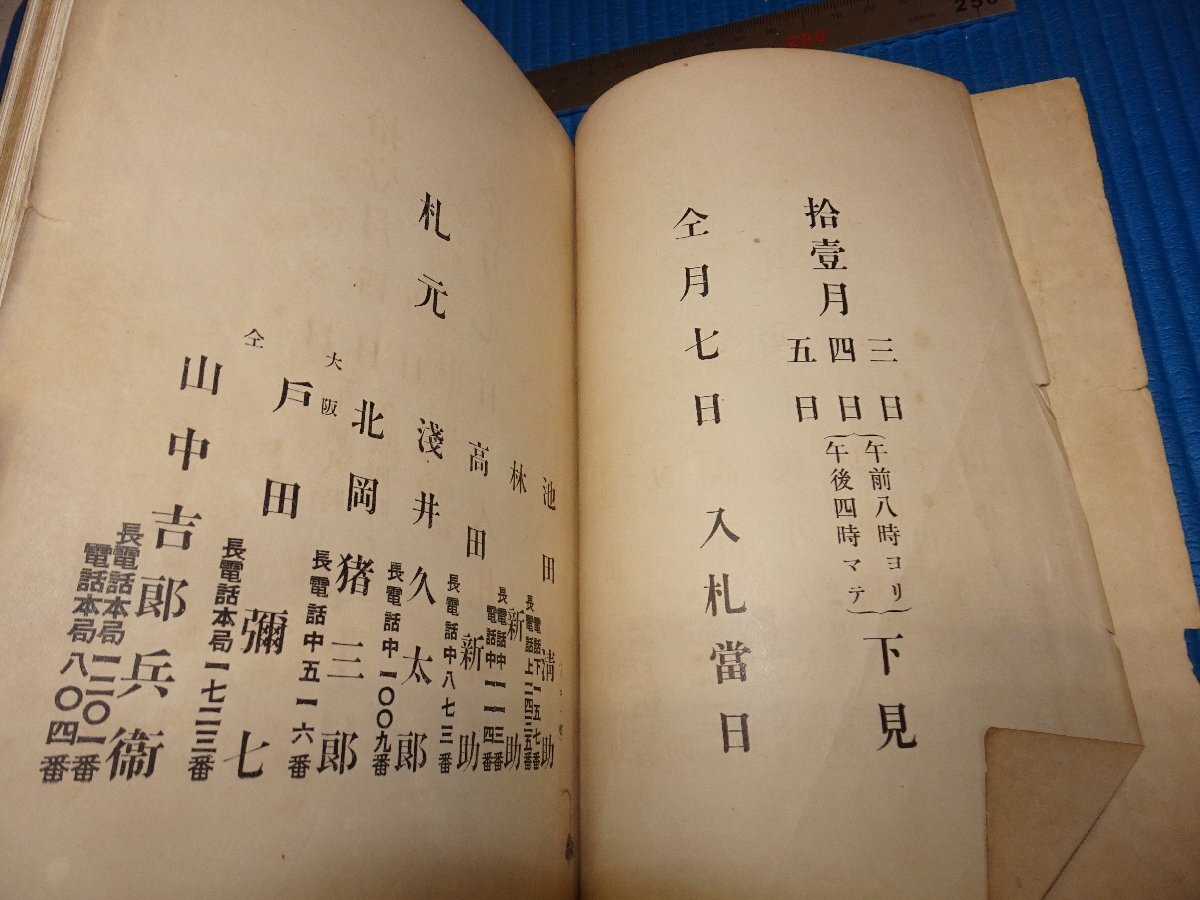 拾壹月
三日
四日
五日
午前八時ヨリ
午後四時マテ
下見
仝月七日
入札當日
札元
池田清助
電話下一五七番
長電話上二四二五番
林新助
長電話中一一三番
電話中一一四番
高田新助
長電話中八七三番
淺井久太郎
長電話中一〇〇九番
大阪
北岡猪三郎
長電話中五一六番
仝
戸田彌七
長電話本局一七二三番
山中吉郎兵衞
長電話本局一二〇一番
電話本局八〇四番
200
250